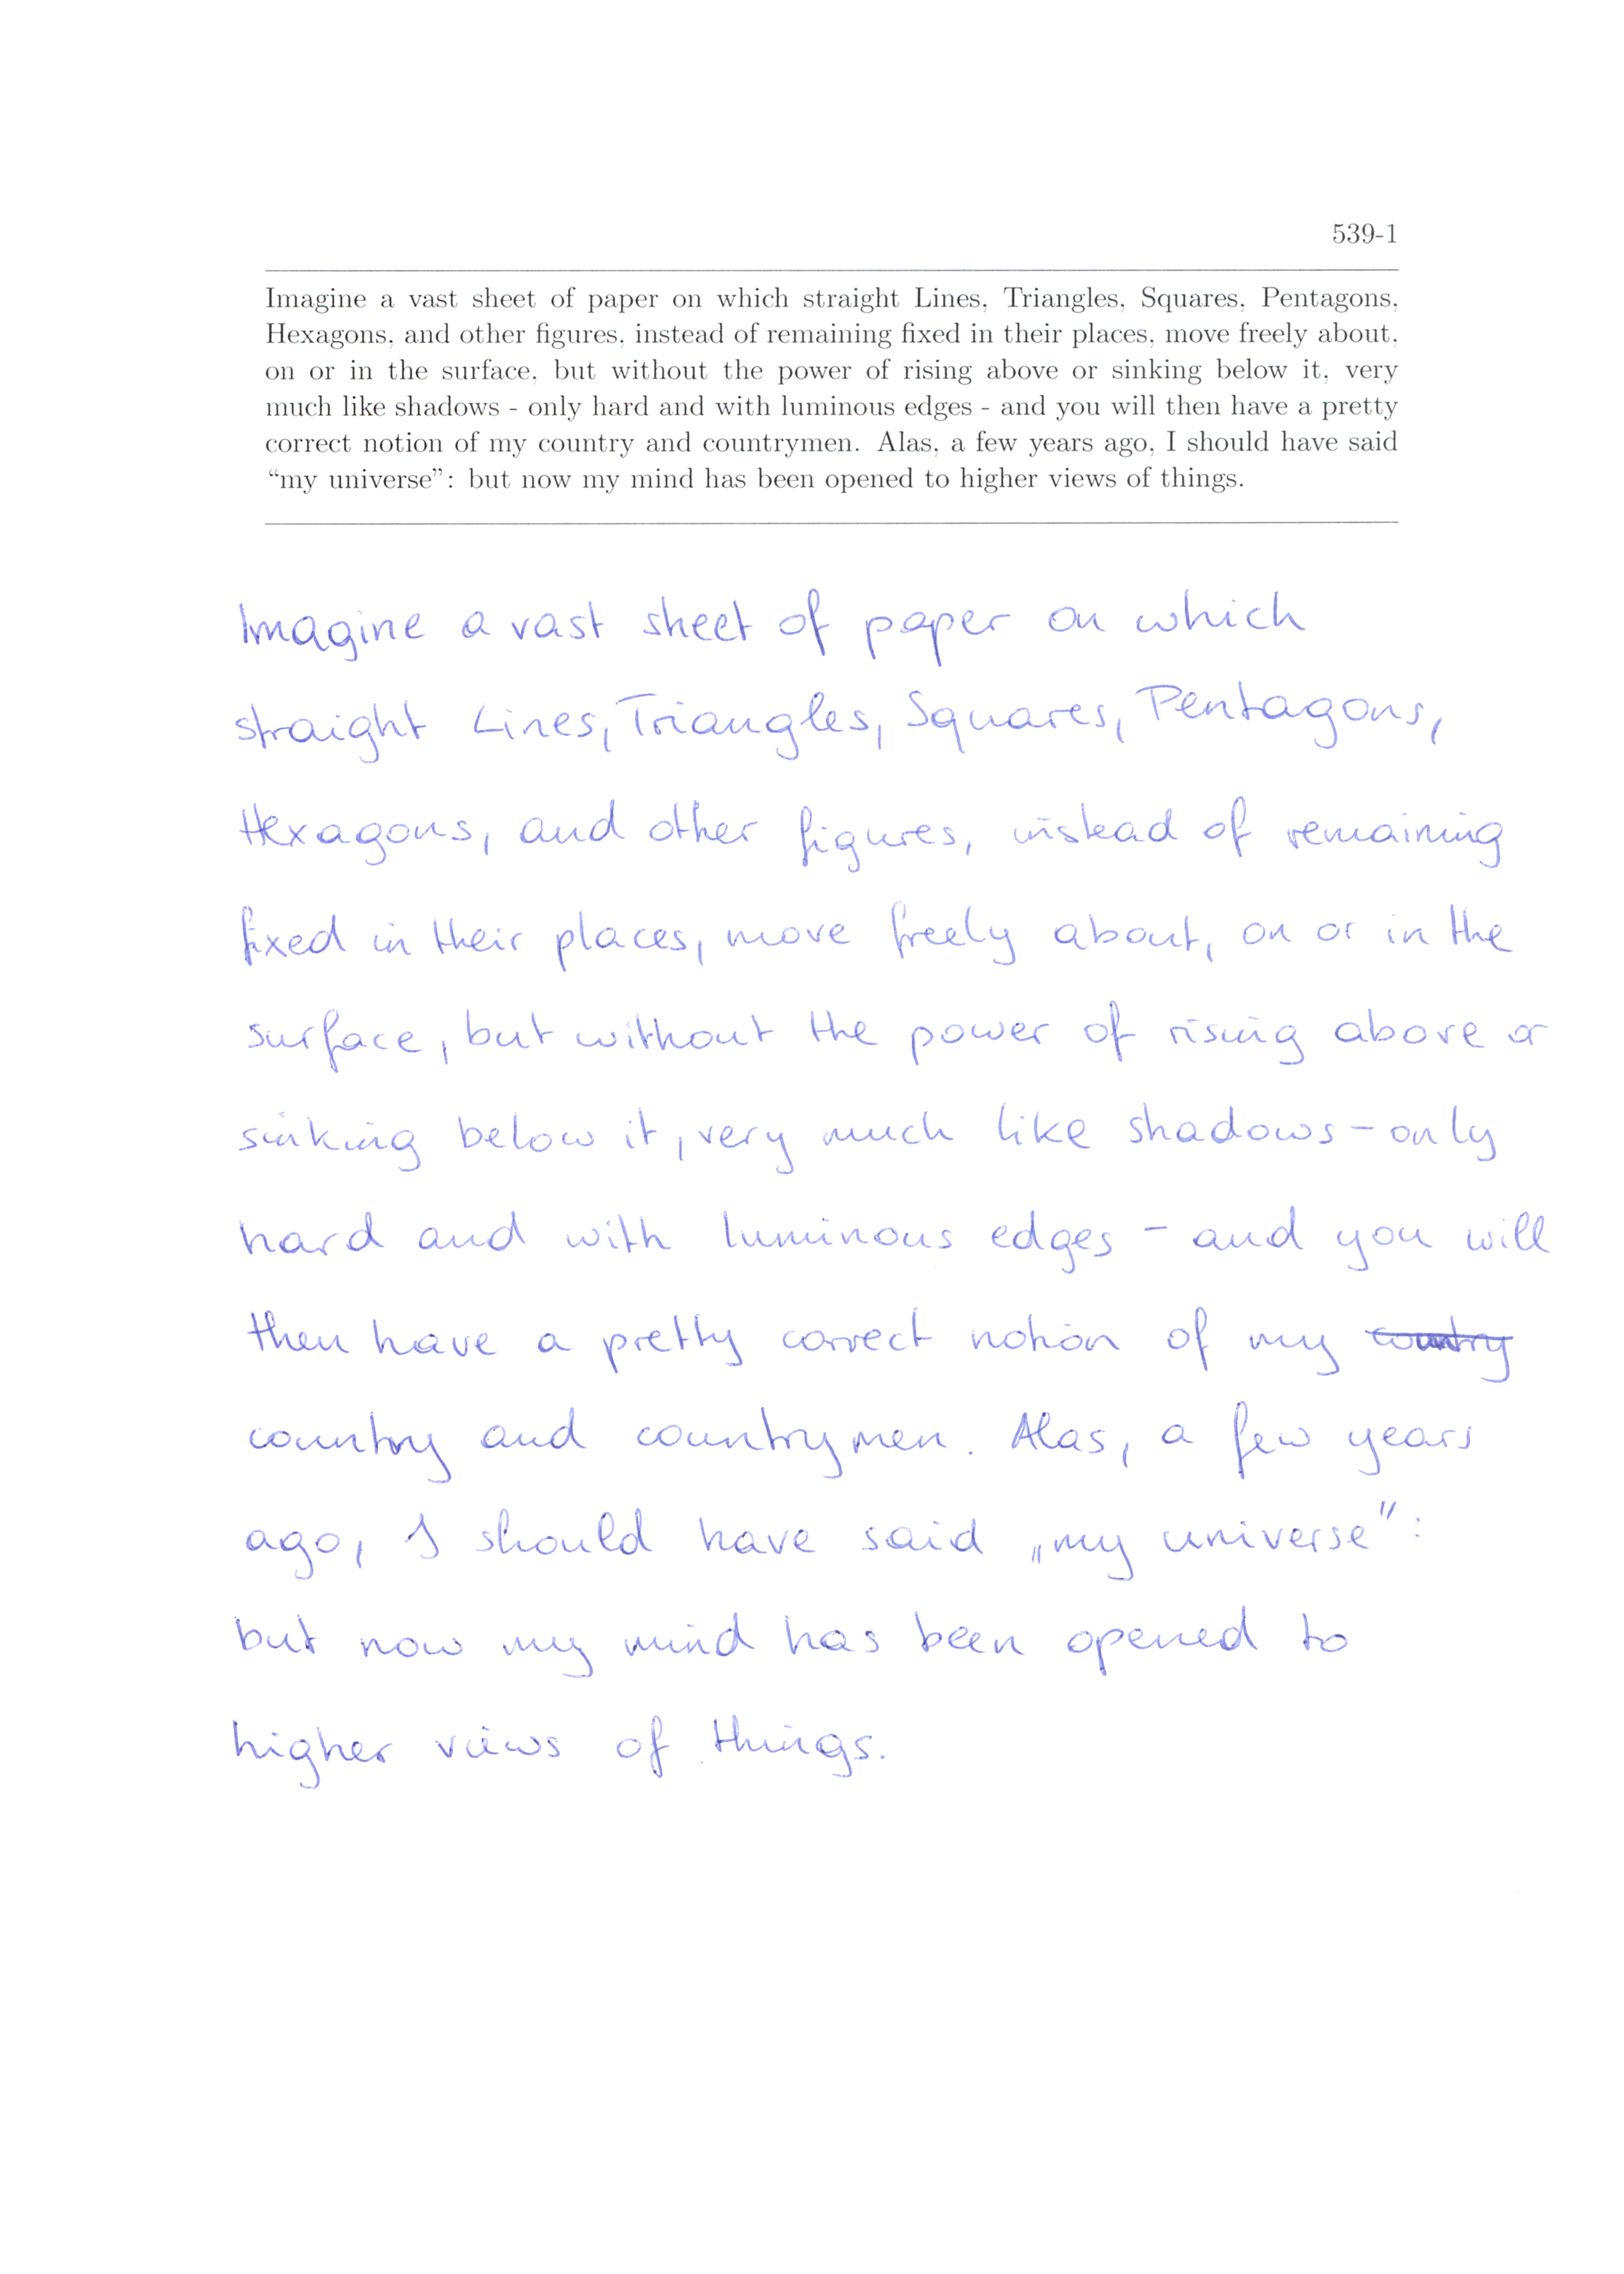 539-1
Imagine a vast sheet of paper on which straight Lines, Triangles, Squares, Pentagons,
Hexagons, and other figures, instead of remaining fixed in their places, move freely about,
on or in the surface, but without the power of rising above or sinking below it, very
much like shadows - only hard and with luminous edges - and you will then have a pretty
correct notion of my country and countrymen. Alas, a few years ago, I should have said
“my universe”: but now my mind has been opened to higher views of things.
Imagine a vast sheet of paper on which
straight Lines, Triangles, Squares, Pentagons,
Hexagons, and other figures, instead of remaining
fixed in their places, move freely about, on or in the
surface, but without the power of rising above or
sinking below it, very much like shadows - only
hard and with luminous edges - and you will
then have a pretty correct notion of my country
country and countrymen. Alas, a few years
ago, I should have said „my universe”:
but now my mind has been opened to
higher views of things.